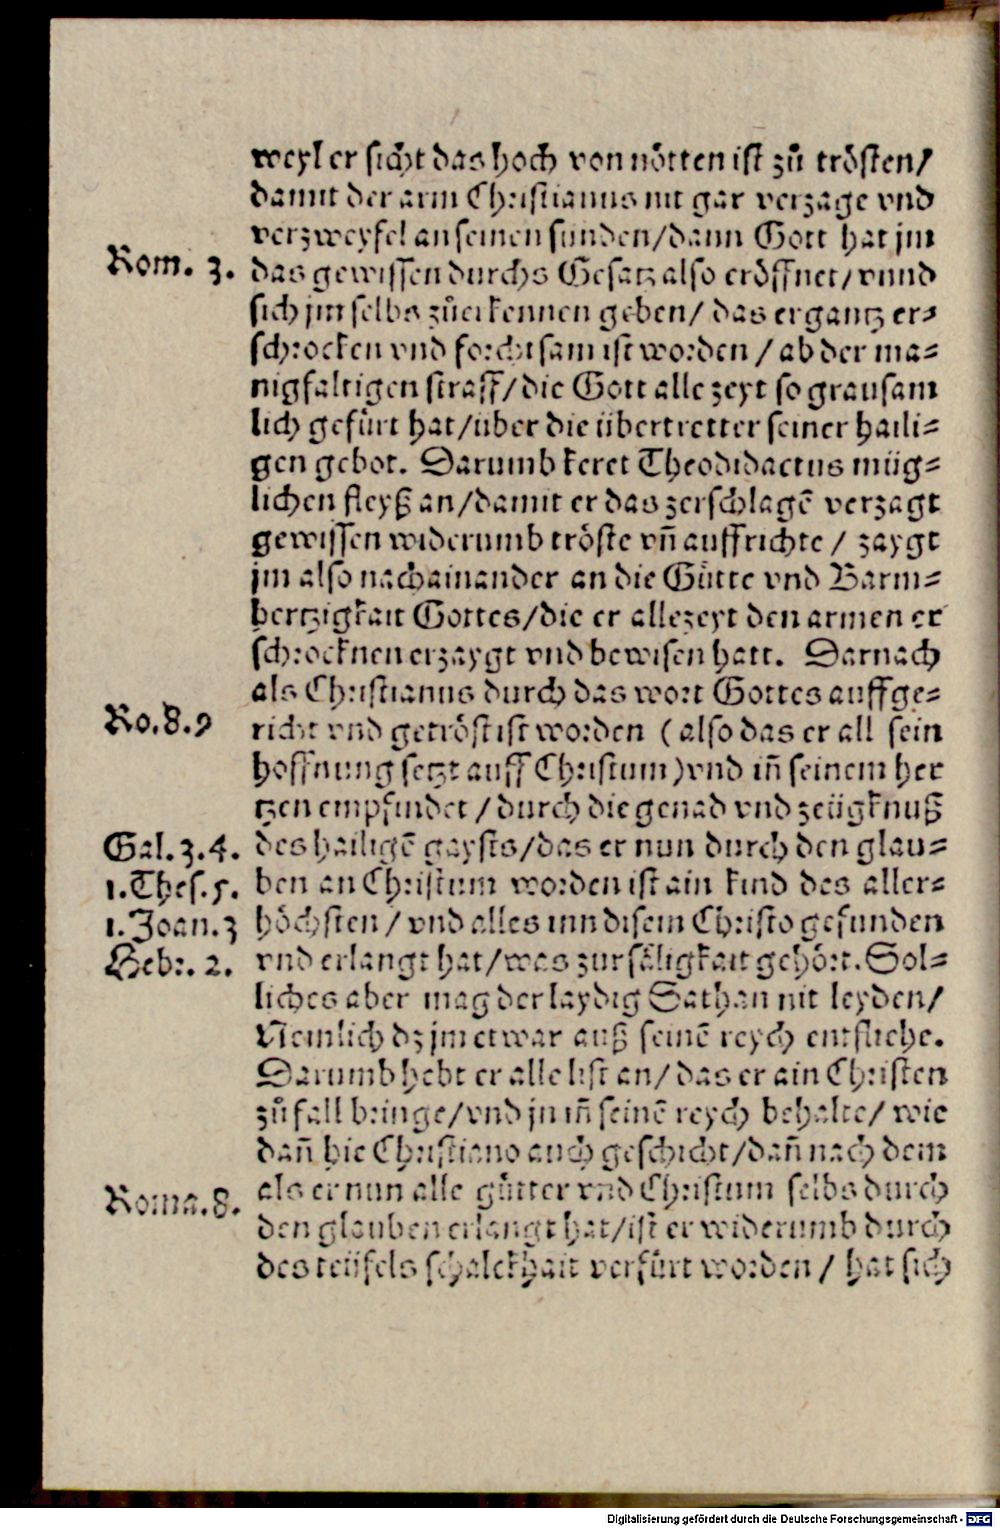 weyl er sicht das hoch von nötten ist zů trösten/
damit der arm Christianus nit gar verzage vnd
verzweyfel an seinen sünden/dann Gott hat jm
Rom. 3.
das gewissen durchs Gesatz also eröffnet/vnnd
sich jm selbs zůerkennen geben/ das er gantz er⸗
schrocken vnd forchtsam ist worden / ab der ma⸗
nigfaltigen straff/die Gott alle zeyt so grausam
lich gefůrt hat/über die übertretter seiner haili⸗
gen gebot. Darumb keret Theodidactus müg⸗
lichen fleyß an/damit er das zerschlagē verzagt
gewissen widerumb tröste vñ auffrichte / zaygt
jm also nachainander an die Gůtte vnd Barm⸗
hertzigkait Gottes/die er allezeyt den armen er
schrocknen erzaygt vnd bewisen hatt. Darnach
als Christianus durch das wort Gottes auffge⸗
Ro.8.9
richt vnd getröst ist worden ( also das er all sein
hoffnung setzt auff Christum )vnd iñ seinem her
tzen empfindet / durch die genad vnd zeügknuß
Gal.3.4.
des hailigē gaysts/das er nun durch den glau⸗
1.Thes.5.
ben an Christum worden ist ain kind des aller⸗
1.Joan.3
höchsten / vnd alles inn disem Christo gefunden
Hebr. 2.
vnd erlangt hat/was zur säligkait gehört. Sol⸗
liches aber mag der laydig Sathan nit leyden/
Nemlich dz jm etwar auß seinē reych entfliehe.
Darumb hebt er alle list an/das er ain Christen
zů fall bringe/vnd jn iñ seinē reych behalte/ wie
dañ hie Christiano auch geschicht/dañ nach dem
Roma.8.
als er nun alle gůtter vnd Christum selbs durch
den glauben erlangt hat/ist er widerumb durch
des teüfels schalckhait verfůrt worden / hat sich
Digitalisierung gefördert durch die Deutsche Forschungsgemeinschaft - DFG